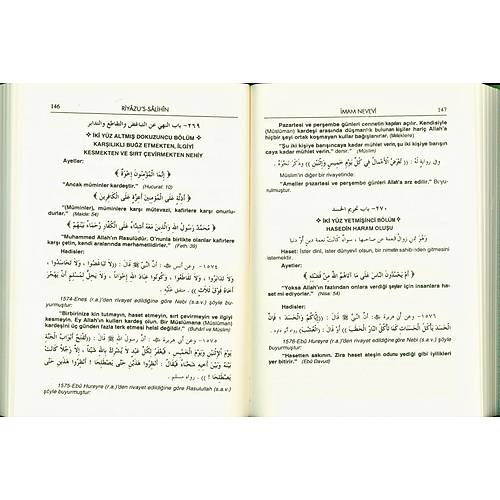 146 RİYÂZU'S-SÂLİHÎN
٢٦٩- باب النهي عن التباغض والتقاطع والتدابر
❖ İKİ YÜZ ALTMIŞ DOKUZUNCU BÖLÜM ❖
KARŞILIKLI BUĞZ ETMEKTEN, İLGİYİ
KESMEKTEN VE SIRT ÇEVİRMEKTEN NEHİY
Ayetler:
﴿ إِنَّمَا الْمُؤْمِنُونَ إِخْوَةٌ ﴾
"Ancak müminler kardeştir." (Hucurat: 10)
﴿ أَذِلَّةٍ عَلَى الْمُؤْمِنِينَ أَعِزَّةٍ عَلَى الْكَافِرِينَ ﴾
"(Müminler), müminlere karşı mütevazi, kafirlere karşı onurlu-
durlar." (Maide: 54)
﴿ مُحَمَّدٌ رَسُولُ اللهِ وَالَّذِينَ مَعَهُ أَشِدَّاءُ عَلَى الْكُفَّارِ رُحَمَاءُ بَيْنَهُمْ ﴾
"Muhammed Allah'ın Rasulüdür. O'nunla birlikte olanlar kafirlere
karşı çetin, kendi aralarında merhametlidirler." (Feth: 29)
Hadisler:
١٥٧٤- وعن أنس ﷺ : أنَّ النبيَّ ﷺ قالَ : ((لا تَبَاغَضُوا ، وَلا تَحَاسَدُوا ،
وَلا تَدَابَرُوا ، وَلا تَقَاطَعُوا ، وَكُونُوا عِبَادَ اللهِ إِخْوَاناً ، وَلا يَحِلُّ لِمُسْلِمٍ أَنْ يَهْجُرَ
أَخَاهُ فَوْقَ ثَلاثٍ )) . متفق عليه .
1574-Enes (r.a.)'den rivayet edildiğine göre Nebi (s.a.v.) şöyle bu-
yurmuştur:
"Birbirinize kin tutmayın, haset etmeyin, sırt çevirmeyin ve ilgiyi
kesmeyin. Ey Allah'ın kulları kardeş olun. Bir Müslümana (Müslüman)
kardeşini üç günden fazla terk etmesi helal değildir." (Buhârî ve Müslim)
١٥٧٥- وعن أبي هريرة ﷺ : أنَّ رسولَ الله ﷺ قالَ : ((تُفْتَحُ أَبْوَابُ الجَنَّةِ
يَوْمَ الإثْنَيْنِ وَيَوْمَ الخَمِيسِ ، فَيُغْفَرُ لِكُلِّ عَبْدٍ لا يُشْرِكُ بِاللهِ شَيْئاً ، إِلاَّ رَجُلاً كَانَتْ
بَيْنَهُ وَبَيْنَ أَخِيهِ شَحْنَاءُ فَيُقَالُ : أَنْظِرُوا هَذَيْنِ حَتَّى يَصْطَلِحَا ! أَنْظِرُوا هَذَيْنِ حَتَّى
يَصْطَلِحَا ! )) . رواه مسلم .
1575-Ebû Hureyre (r.a.)'den rivayet edildiğine göre Rasulullah (s.a.v.)
şöyle buyurmuştur:
İMAM NEVEVÎ 147
Pazartesi ve perşembe günleri cennetin kapıları açılır. Kendisiyle
(Müslüman) kardeşi arasında düşmanlık bulunan kişiler hariç Allah'a
hiçbir şeyi ortak koşmayan tüm kullar bağışlanırlar. (Meleklere)
"Şu iki kişiye barışıncaya kadar mühlet verin. Şu iki kişiye barışın-
caya kadar mühlet verin." denir." (Müslim)
وفي رواية لَهُ : (( تُعْرَضُ الأَعْمَالُ فِي كُلِّ يَوْمِ خَمِيسٍ وَاثْنَيْنِ )) وذكر نحوه .
Müslim'in diğer bir rivayetinde:
"Ameller pazartesi ve perşembe günleri Allah'a arz edilir." Buyu-
rulmuştur.
٢٧٠- باب تحريم الحسد
❖ İKİ YÜZ YETMİŞİNCİ BÖLÜM ❖
HASEDİN HARAM OLUŞU
وَهُوَ تمني زوال النعمة عن صاحبها ، سواء كانت نعمة دين أو دنيا
Haset: İster dinî, ister dünyevi olsun, bir nimetin sahibindeki nimetin yok olmasını
istemektir.
Ayetler:
﴿ أَمْ يَحْسُدُونَ النَّاسَ عَلَى مَا آتَاهُمُ اللهُ مِنْ فَضْلِهِ ﴾
"Yoksa Allah'ın fazlından onlara verdiği şeyler için insanlara ha-
set mi ediyorlar." (Nisa: 54)
Hadisler:
١٥٧٦- وعن أبي هريرة ﷺ : أنَّ النبيَّ ﷺ قالَ : ((إِيَّاكُمْ وَالْحَسَدَ ؛ فَإِنَّ
الحَسَدَ يَأْكُلُ الحَسَنَاتِ كَمَا تَأْكُلُ النَّارُ الحَطَبَ )) أوْ قالَ : ((العُشْبَ)) رواه أبو داود .
1576-Ebû Hureyre (r.a.)'den rivayet edildiğine göre Nebi (s.a.v.) şöyle
buyurmuştur:
"Hasetten sakının. Zira haset ateşin odunu yediği gibi iyilikleri
yer bitirir." (Ebû Davud)